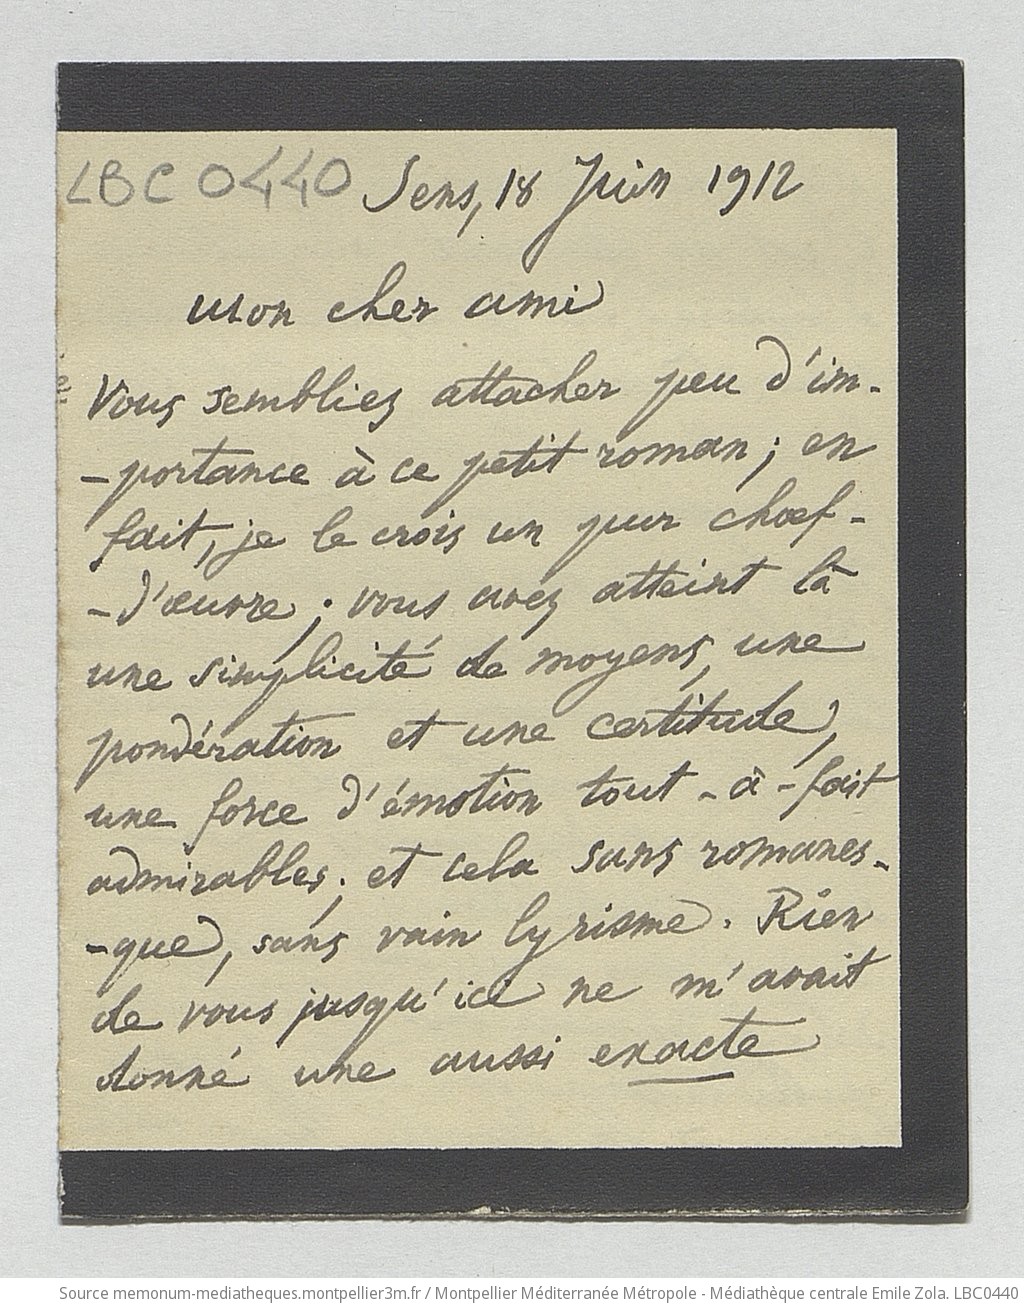 LBC 0440 Sens, 18 Juin 1912
Mon cher ami
Vous sembliez attacher peu d'im-
-portance à ce petit roman ; en
fait, je le crois un pur chœf-
-d'œuvre ; vous avez atteint là
une simplicité de moyens, une
pondération et une certitude,
une force d'émotion tout-à-fait
admirables ; et cela sans romanes-
-que, sans vain lyrisme. Rien
de vous jusqu'ici ne m'avait
donné une aussi exacte
Source memonum-mediatheques.montpellier3m.fr / Montpellier Méditerranée Métropole - Médiathèque centrale Emile Zola. LBC0440